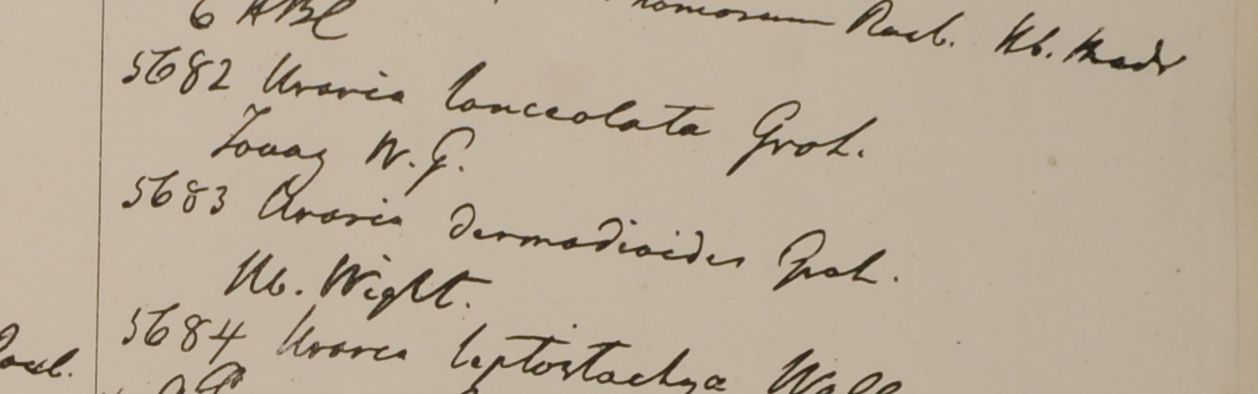 6 HBC
Roxb. Hb. Madr
5682 Uraria lanceolata Grah.
Tavoy W.G.
5683 Uraria desmodioides Grah.
Hb. Wight.
5684 Uraria leptostachya Wall
Roxb.